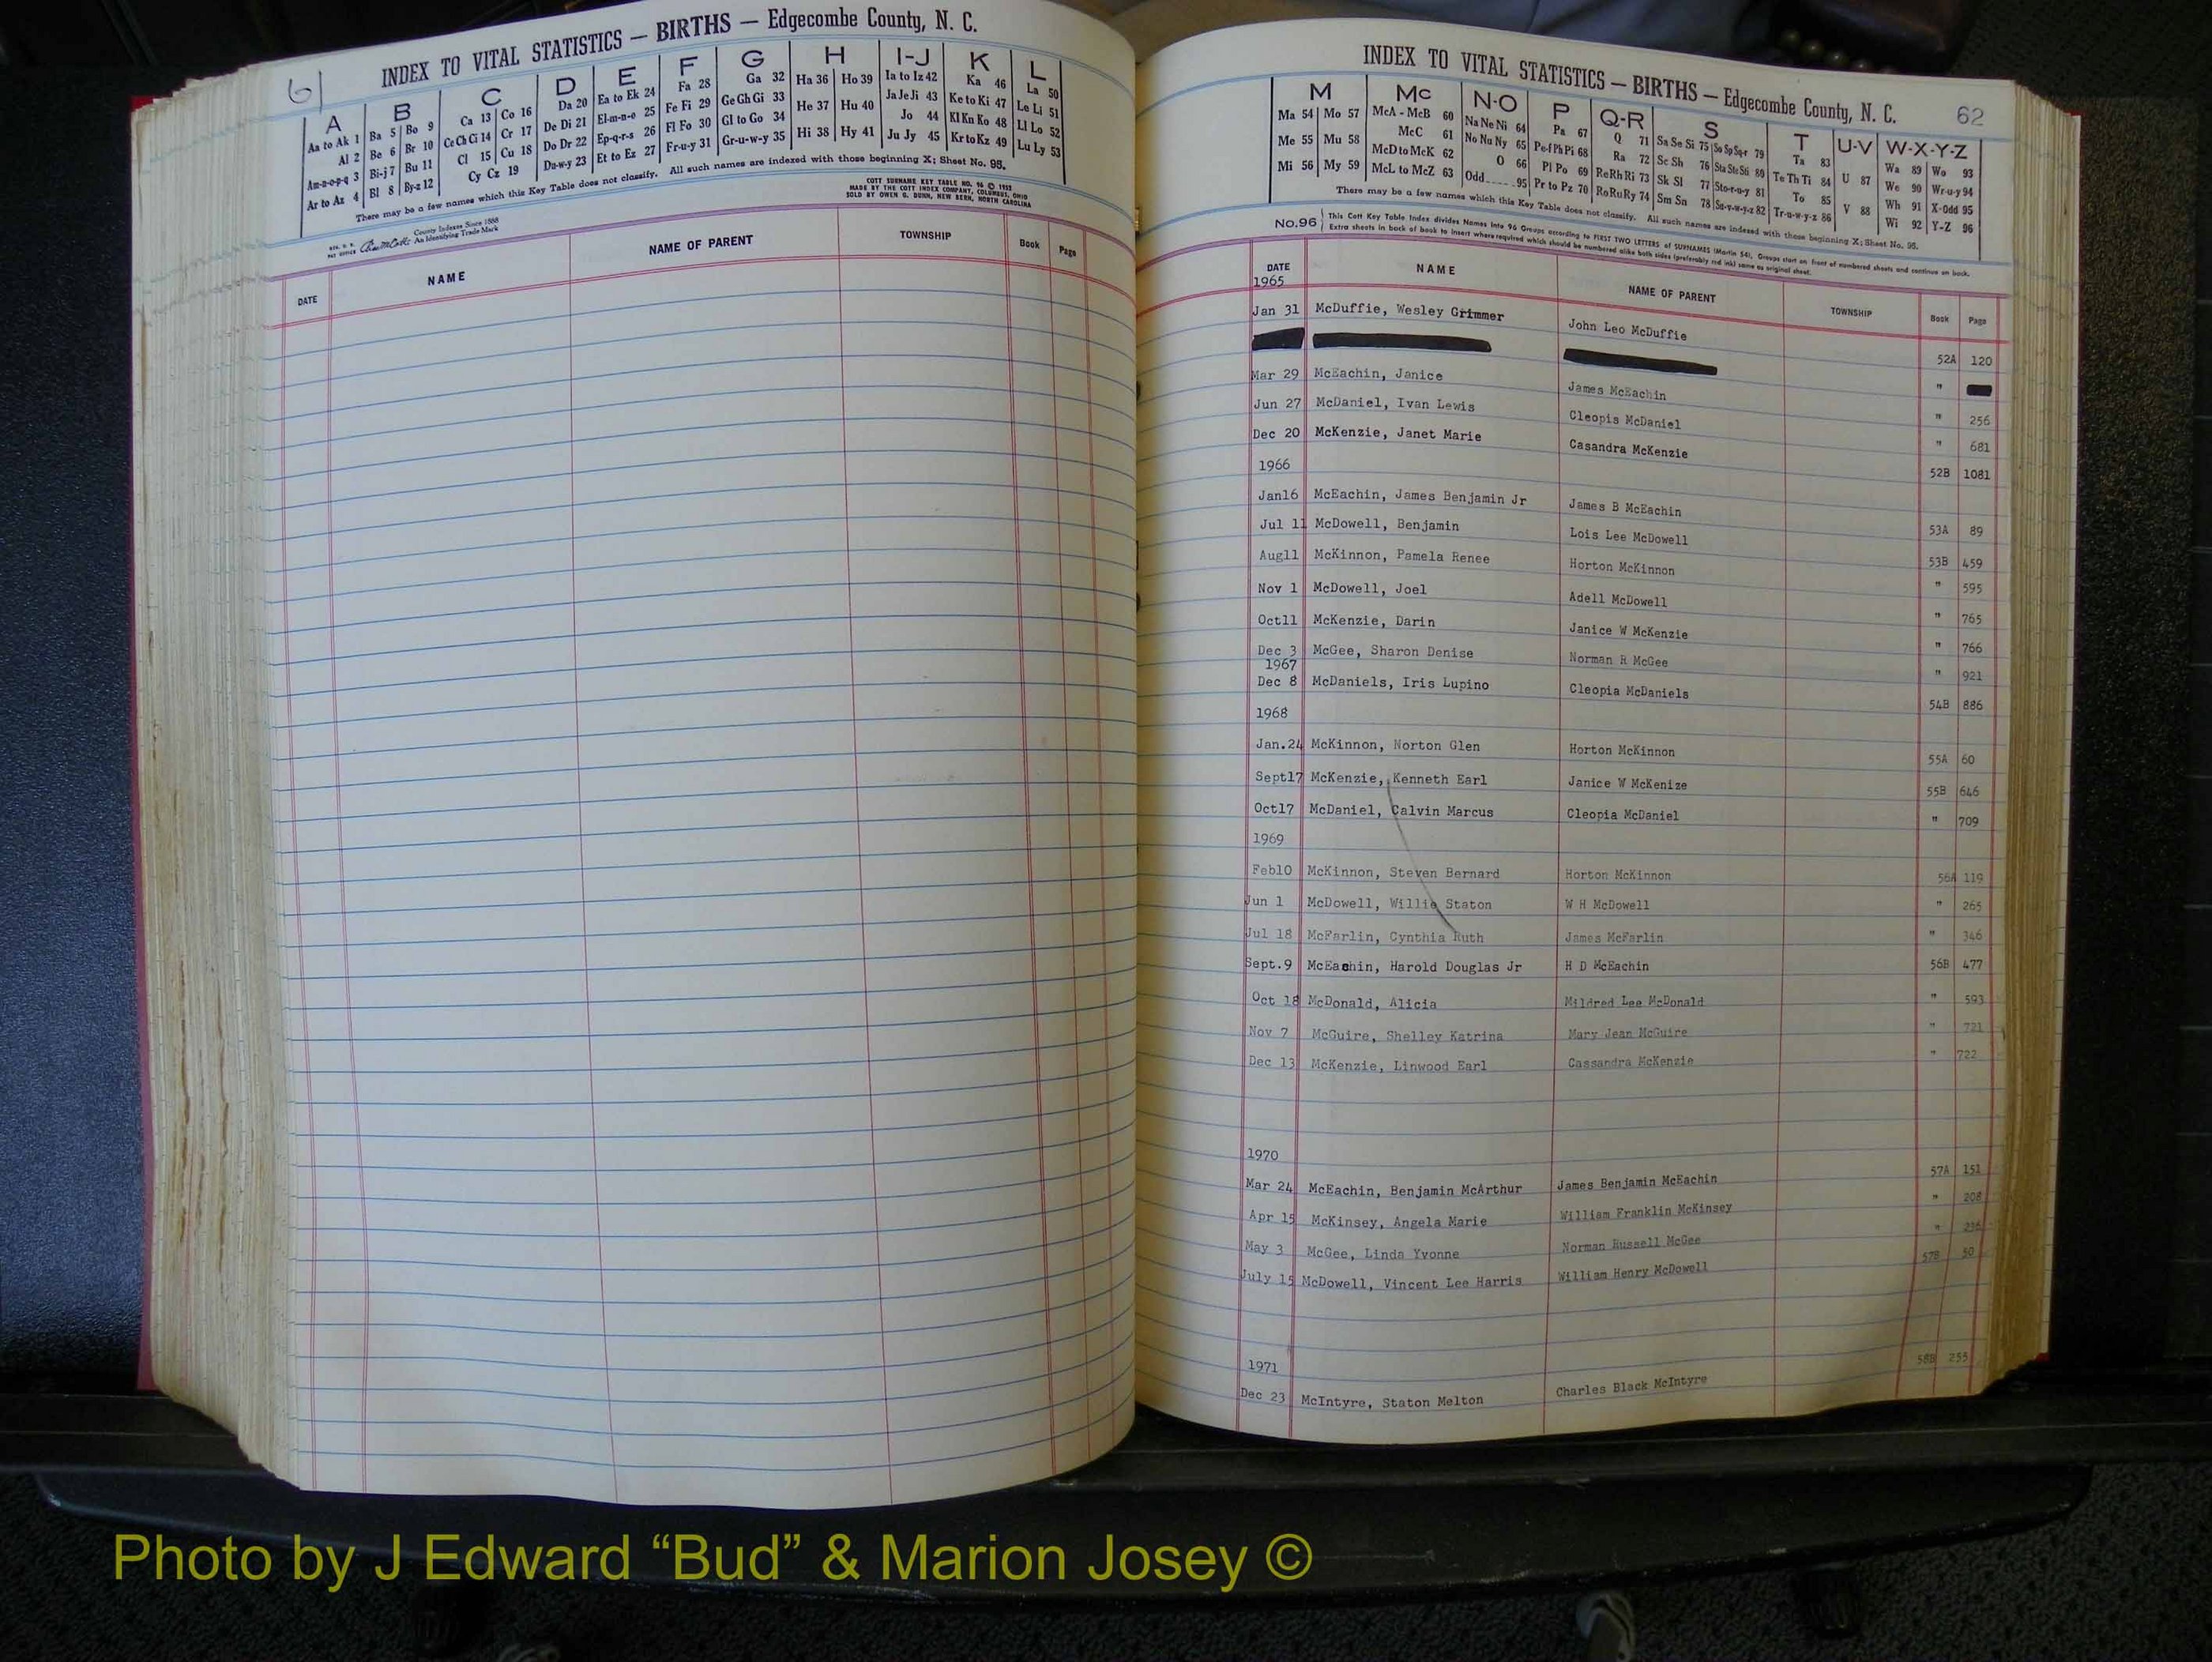 61
INDEX TO VITAL STATISTICS — BIRTHS — Edgecombe County, N. C.
A B C D E F G H I-J K L
Aa to Ak 1 Ba 5 Bo 9 Ca 13 Co 16 Da 20 Ea to Ek 24 Fa 28 Ga 32 Ha 36 Ho 39 Ia to Iz 42 Ka 46 La 50
Al 2 Be 6 Br 10 Ce Ch Ci 14 Cr 17 De Di 21 El-m-n-o 25 Fe Fi 29 Ge Gh Gi 33 He 37 Hu 40 Ja Je Ji 43 Ke to Ki 47 Le Li 51
Am-n-o-p-q 3 Bi-j 7 Bu 11 Cl 15 Cu 18 Do Dr 22 Ep-q-r-s 26 Fl Fo 30 Gl to Go 34 Hi 38 Hy 41 Jo 44 Kl Kn Ko 48 Ll Lo 52
Ar to Az 4 Bl 8 By-z 12 Cy Cz 19 Du-w-y 23 Et to Ez 27 Fr-u-y 31 Gr-u-w-y 35 Ju Jy 45 Kr to Kz 49 Lu Ly 53
There may be a few names which this Key Table does not classify. All such names are indexed with those beginning X; Sheet No. 95.
COTT SURNAME KEY TABLE NO. 96 ©
MADE BY THE COTT INDEX COMPANY, COLUMBUS, OHIO
SOLD BY OWEN G. DUNN, NEW BERN, NORTH CAROLINA
County Indexes Since 1888
An Identifying Trade Mark
DATE NAME NAME OF PARENT TOWNSHIP Book Page
INDEX TO VITAL STATISTICS — BIRTHS — Edgecombe County, N. C. 62
M Mc N-O P Q-R S T U-V W-X-Y-Z
Ma 54 Mo 57 McA - McB 60 Na Ne Ni 64 Pa 67 Q 71 Sa Se Si 75 So Sp Sq-r 79 Ta 83 U 87 Wa 89 Wo 93
Me 55 Mu 58 McC 61 No Nu Ny 65 Pe-f Ph Pi 68 Ra 72 Sc Sh 76 Sta Ste Sti 80 Te Th Ti 84 V 88 We 90 Wr-u-y 94
Mi 56 My 59 McD to McK 62 O 66 Pl Po 69 Re Rh Ri 73 Sk Sl 77 Sto-r-u-y 81 To 85 Wh 91 X-Odd 95
McL to McZ 63 Odd 95 Pr to Pz 70 Ro Ru Ry 74 Sm Sn 78 Su-v-w-y-z 82 Tr-u-w-y-z 86 Wi 92 Y-Z 96
There may be a few names which this Key Table does not classify. All such names are indexed with those beginning X; Sheet No. 95.
No. 96 This Cott Key Table Index divides Names into 96 Groups according to FIRST TWO LETTERS of SURNAMES (Martin 54). Groups start on front of numbered sheets and continue on back.
Extra sheets in back of book to insert where required which should be numbered alike both sides (preferably red ink) same as original sheet.
DATE NAME NAME OF PARENT TOWNSHIP Book Page
1965
Jan 31 McDuffie, Wesley Grimmer John Leo McDuffie 52A 120
"
Mar 29 McEachin, Janice James McEachin " 256
Jun 27 McDaniel, Ivan Lewis Cleopis McDaniel " 681
Dec 20 McKenzie, Janet Marie Casandra McKenzie 52B 1081
1966
Jan16 McEachin, James Benjamin Jr James B McEachin 53A 89
Jul 11 McDowell, Benjamin Lois Lee McDowell 53B 459
Aug11 McKinnon, Pamela Renee Horton McKinnon " 595
Nov 1 McDowell, Joel Adell McDowell " 765
Oct11 McKenzie, Darin Janice W McKenzie " 766
Dec 3 McGee, Sharon Denise Norman R McGee " 921
1967
Dec 8 McDaniels, Iris Lupino Cleopia McDaniels 54B 886
1968
Jan.24 McKinnon, Norton Glen Horton McKinnon 55A 60
Sept17 McKenzie, Kenneth Earl Janice W McKenize 55B 646
Oct17 McDaniel, Calvin Marcus Cleopia McDaniel " 709
1969
Feb10 McKinnon, Steven Bernard Horton McKinnon 56A 119
Jun 1 McDowell, Willie Staton W H McDowell " 265
Jul 18 McFarlin, Cynthia Ruth James McFarlin " 346
Sept.9 McEachin, Harold Douglas Jr H D McEachin 56B 477
Oct 18 McDonald, Alicia Mildred Lee McDonald " 593
Nov 7 McGuire, Shelley Katrina Mary Jean McGuire " 721
Dec 13 McKenzie, Linwood Earl Cassandra McKenzie " 722
1970
Mar 24 McEachin, Benjamin McArthur James Benjamin McEachin 57A 151
Apr 15 McKinsey, Angela Marie William Franklin McKinsey " 208
May 3 McGee, Linda Yvonne Norman Russell McGee " 236
July 15 McDowell, Vincent Lee Harris William Henry McDowell 57B 50
1971
Dec 23 McIntyre, Staton Melton Charles Black McIntyre 58B 255
Photo by J Edward “Bud” & Marion Josey ©